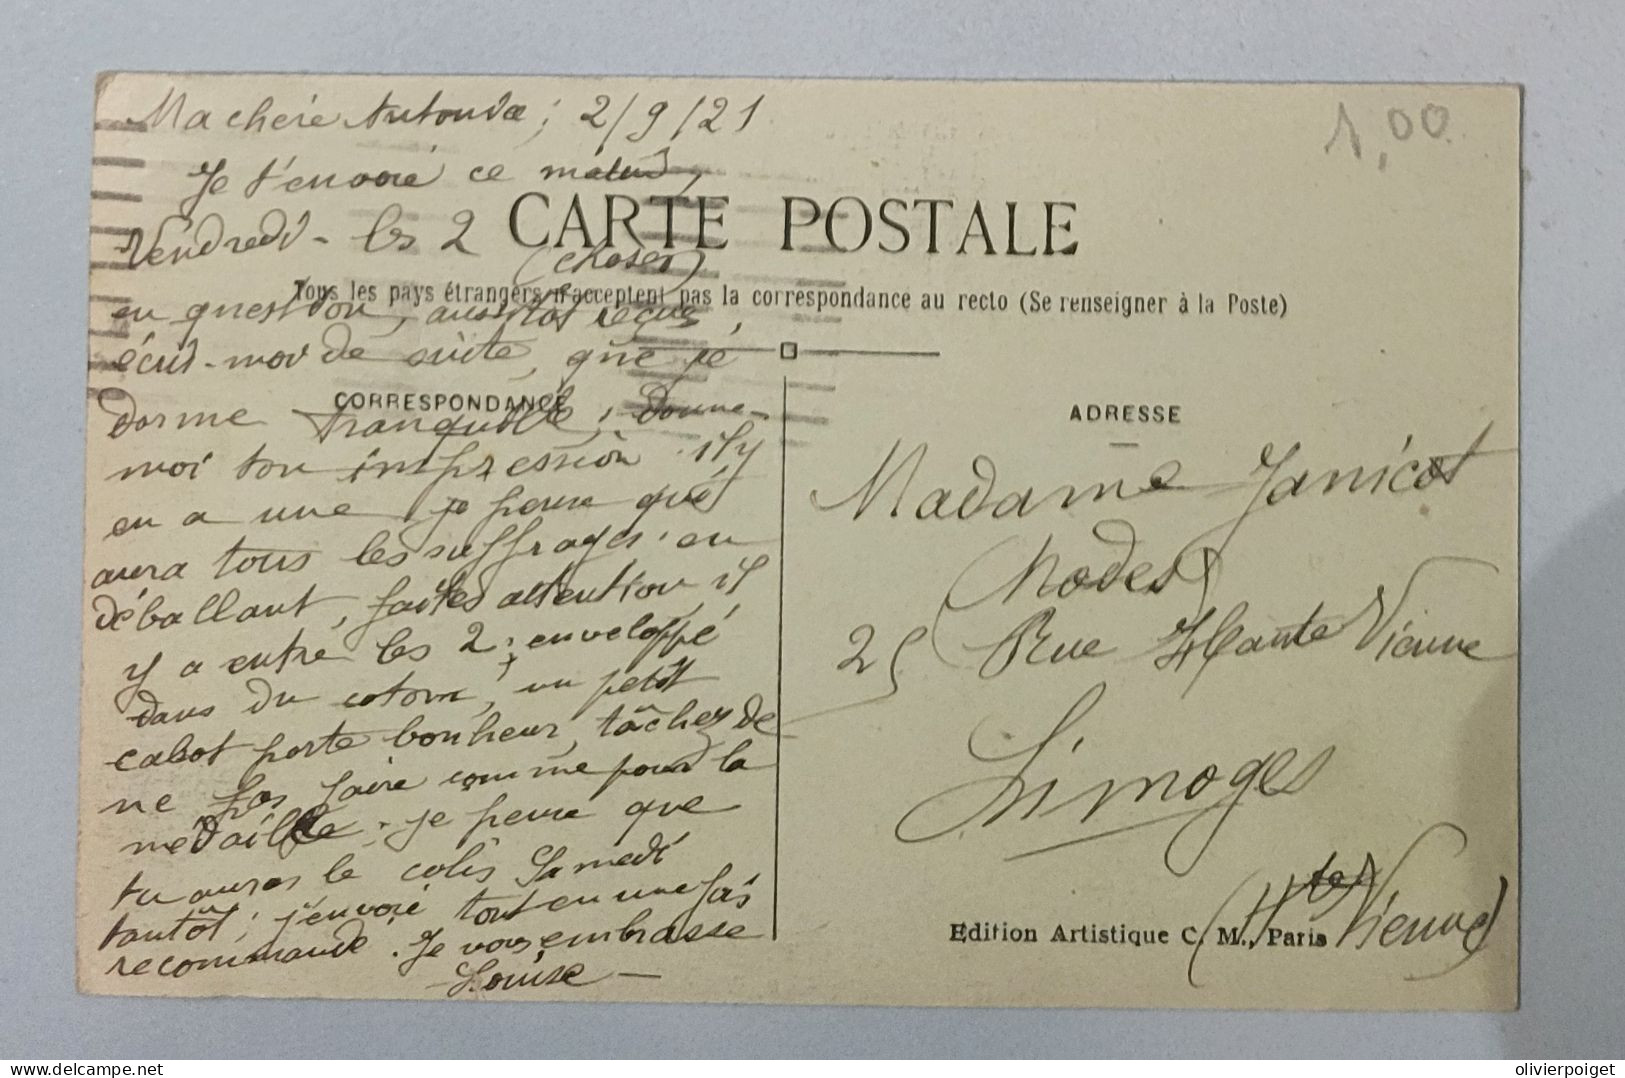 Ma chère 2/9/21
Je t'envoie ce matin,
Vendredi - les 2
(choses)
en question, aussitôt reçus,
écris-moi de suite, que je
dorme tranquille, donne-
moi ton impression. il y
en a une, je pense que
aura tous les suffrages. en
déballant, faites attention il
y a entre les 2, enveloppé
dans du coton, un petit
cabot porte bonheur, tâchez de
ne pas faire comme pour la
médaille. je pense que
tu auras le colis Samedi
tantôt; j'envoie tout en une fois
recommandé. Je vous embrasse
Louise -
1,00
CARTE POSTALE
Tous les pays étrangers n'acceptent pas la correspondance au recto (Se renseigner à la Poste)
CORRESPONDANCE
ADRESSE
Madame Janicot
(Modes)
25 Rue Haute Vienne
Limoges
(Hte Vienne)
Edition Artistique C. M., Paris
delcampe.net
olivierpoiget